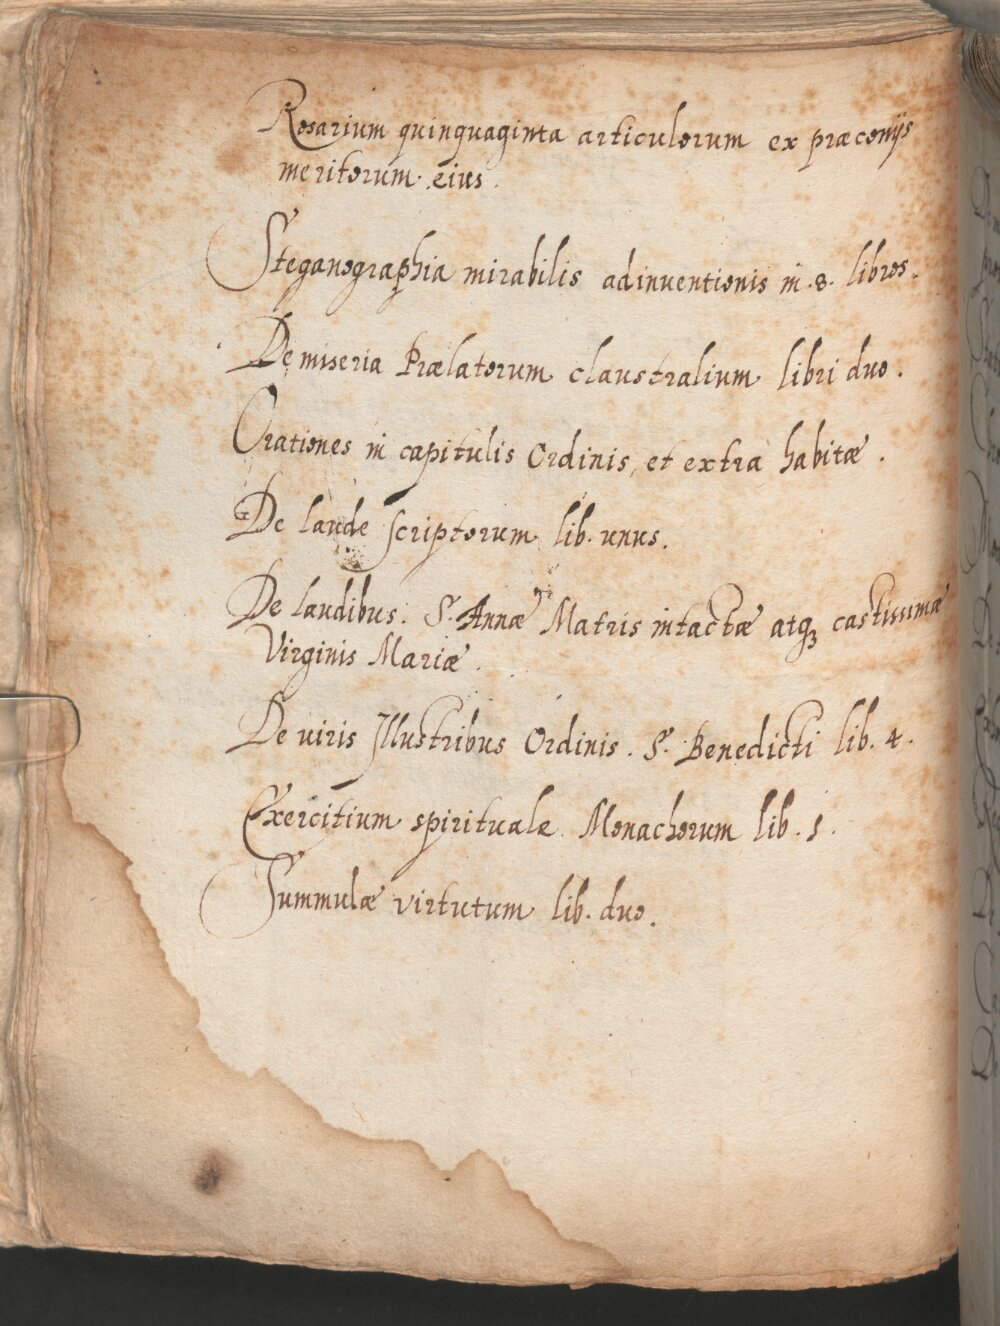 Rosarium quinquaginta articulorum ex præconijs
meritorum eius.
Steganographia mirabilis adinuentionis in .8. libros.
De miseria Prælatorum claustralium libri duo.
Orationes in capitulis Ordinis, et extra habitæ.
De laude scriptorum lib. unus.
De laudibus. S. Annæ Matris intactæ atq3 castissimæ
Virginis Mariæ.
De uiris Illustribus Ordinis. S. Benedicti lib. 4.
Exercitium spirituale Monachorum lib. 1.
Summulæ virtutum lib. duo.